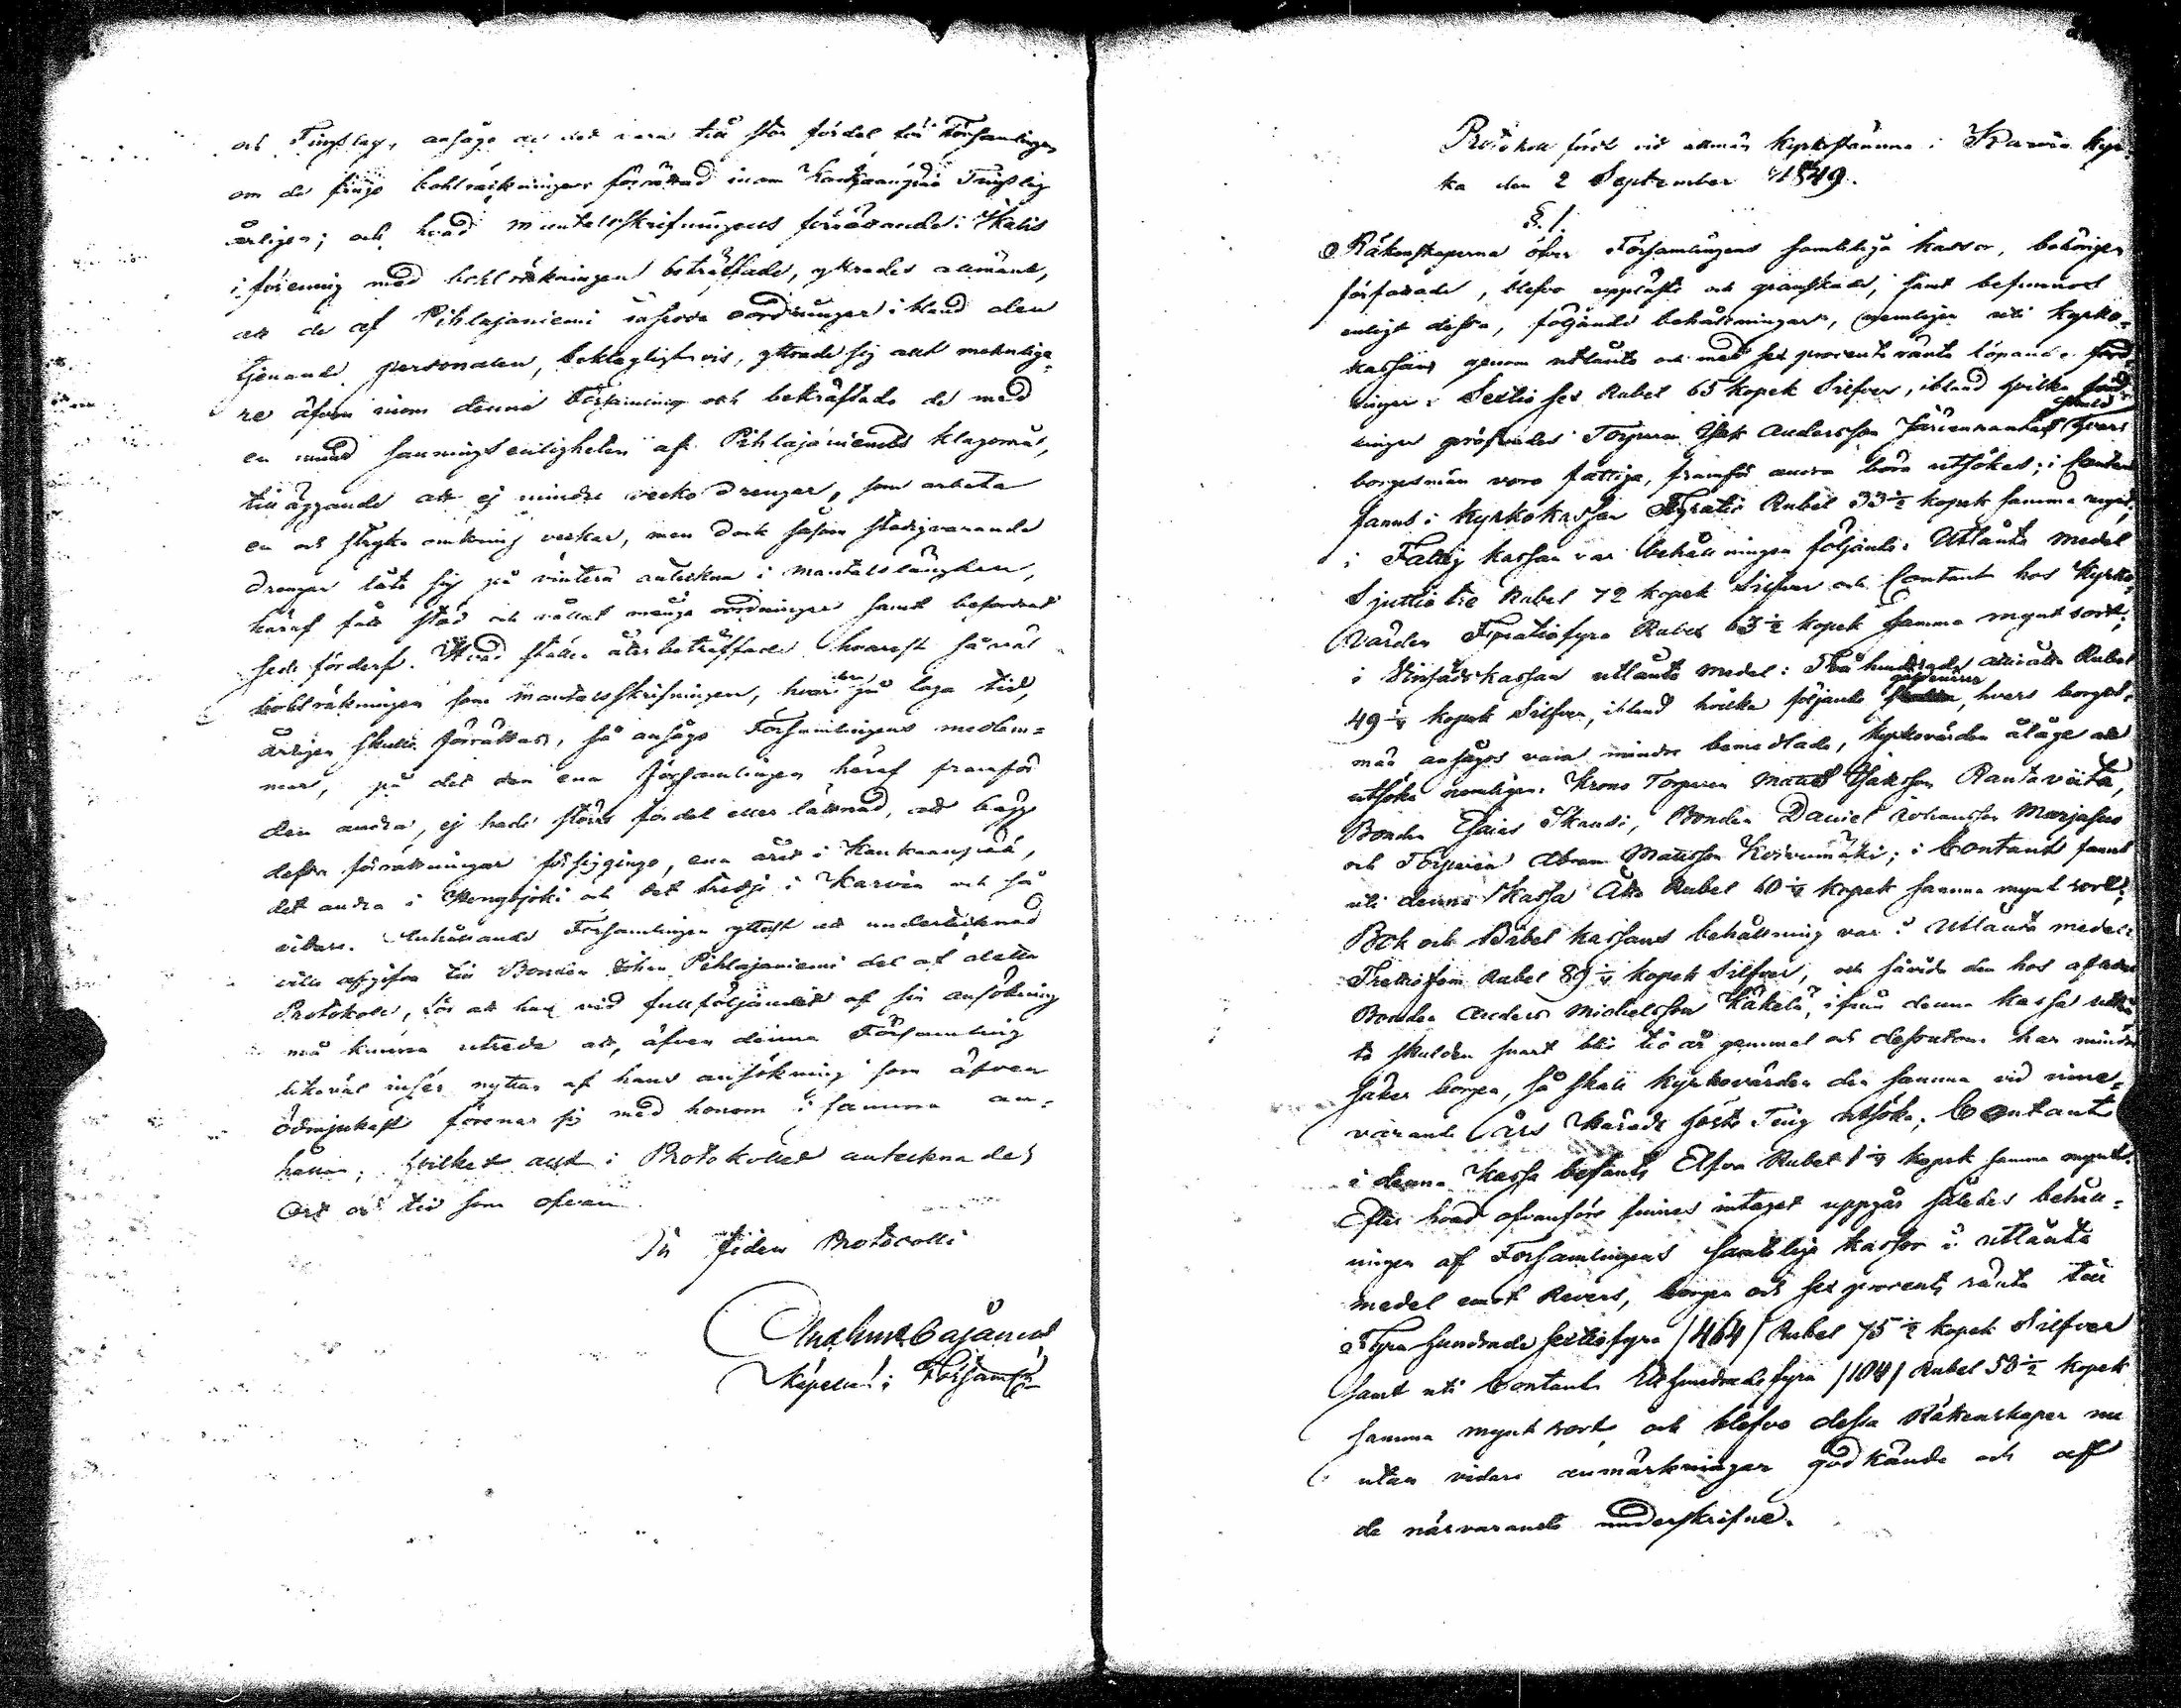 och Tingslag, ansågo de det vara till stor fördel för Församlingen
om de finge bohlräkningen förrättad inom Kankaanpää Tingslag
årligen; och hvad mantalsskrifningens förrättande i Wahis
i förening med bohlräkningen beträffade, yttrades allmänt,
att de af Pihlajaniemi införde oordningar ibland den
tjenande personalen, beklagligtvis, yttrade sig allt menlige-
re äfven inom denna Församling och bekräftade de med
en mund sanningsenligheten af Pihlajaniemis klagomål,
tilläggande att ej mindre vecko drengar, som arbeta
en och stryka omkring veckor, men dock såsom stadigvarande
drengar låta sig på vintern anteckna i mantalslängden,
häraf fått stöd och vållat många oordningar samt befordrat
sedeförderf. Hvad stället åter beträffade hvarest såväl
bohlräkningen som mantalsskrifningen, hvardera på laga tid,
årligen skulle förrättas, så ansågo Församlingens medlem-
mar, på det den ena Församlingen häraf framför
den andra, ej hade större fördel eller lättnad, att begge
dessa förrättningar försiggingo, ena året i Kankaanpää,
det andra i Hongojoki och det tredje i Karvia och så
vidare. Anhållande Församlingen ytterst att undertecknad
ville afgifva till Bonden Johan Pihlajaniemi del af detta
Protokoll, för att han vid fullföljandet af sin ansökning
må kunna utreda att, äfven denna Församling
likaväl inser nyttan af hans ansökning som äfven
ödmjukast förenar sig med honom i samma an-
hållan; hvilket allt i Protokollet antecknades
Ort och tid som ofvan
In fidem Protocolli
Cajanus
Kapellan i Församl:n
Protokoll fördt vid allmän kyrkostämma i Karvia Kyr-
ka den 2 September 1849.
§. 1.
Räkenskaperna öfver Församlingens samteliga kassor, behörigen
författade, blefvo upplästa och granskade, samt befunnos
enligt dessa, följande behållningar, nemligen uti kyrko-
kassan genom utlånte och med sex procents ränta löpande ford-
ringar: Sextio sex Rubel 65 kopek Silfver, ibland hvilka ford-
ringar pröfvades Torparen Isak Andersson Järvenrandas skuld hvars
borgesmän voro fattiga, framför andra böra utsökas; i Contant
fanns i Kyrkokassan Fyratio Rubel 33½ kopek samma mynt,
i Fattig kassan var behållningen följande: Utlånta medel
Sjuttio tre Rubel 72 kopek Silfver och Contant hos Kyrko-
värden Fyratiofyra Rubel 63½ kopek samma myntsort;
i utlånta medel: Två hundrade åttioåtta Rubel
49¼ kopek Silfver, ibland hvilka följande gäldenärer, hvars borges-
män ansågos vara mindre bemedlade, kyrkovärden ålåge att
utsöka nemligen: Krono Torparen Matts Isaksson Rantaviita,
Bonden Esaias Skansi, Bonden Daniel Johansson Marjasuo
och Torparen Abram Mattsson Koivumäki; i Contant fanns
uti denna Kassa Åtta Rubel 60¼ kopek samma mynt sort;
Bok och Bibel kassans behållning var i Utlånta medel
Trettiofem Rubel 89¼ kopek Silfver, och såvida den hos aflidne
Bonden Anders Michelsson Käkelä, ifrån denna kassa utlån-
te skulden snart blir tio år gammal och dessutom har mindre
säker borgen, så skall kyrkovärden den samma vid inne-
varande års Härads höste Ting utsöka; Contant
i denna Kassa befants Elfva Rubel 1¼ kopek samma mynt.
Efter hvad ofvanföre finnes intaget uppgår således behåll-
ningen af Församlingens samtelige kassor i utlånta
medel emot Revers, borgen och sex procents ränta till
Fyra hundrade sextiofyra /464/ Rubel 75½ kopek Silfver
samt uti Contant Etthundradefyra /104/ Rubel 58½ kopek
samma mynt sort, och blefvo dessa Räkenskaper nu
utan vidare anmärkningar godkände och af
de närvarande underskrifne.